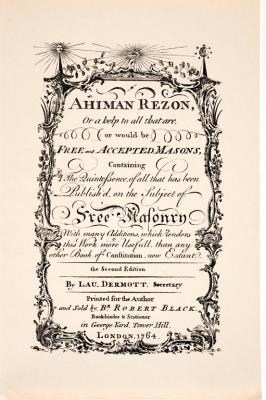 AHIMAN REZON,
Or a help to all that are.
or would be
FREE and ACCEPTED MASONS,
Containing
The Quintessence of all that has been
Publish'd, on the Subject of
Free Masonry
With many Additions, which Renders
this Work more Usefull, than any
other Book of Constitution, now Extant.
the Second Edition
By LAU. DERMOTT. Secretary
Printed for the Author
and Sold by Br. ROBERT BLACK.
Bookbinder & Stationer
in George Yard, Tower Hill.
LONDON, 1764.